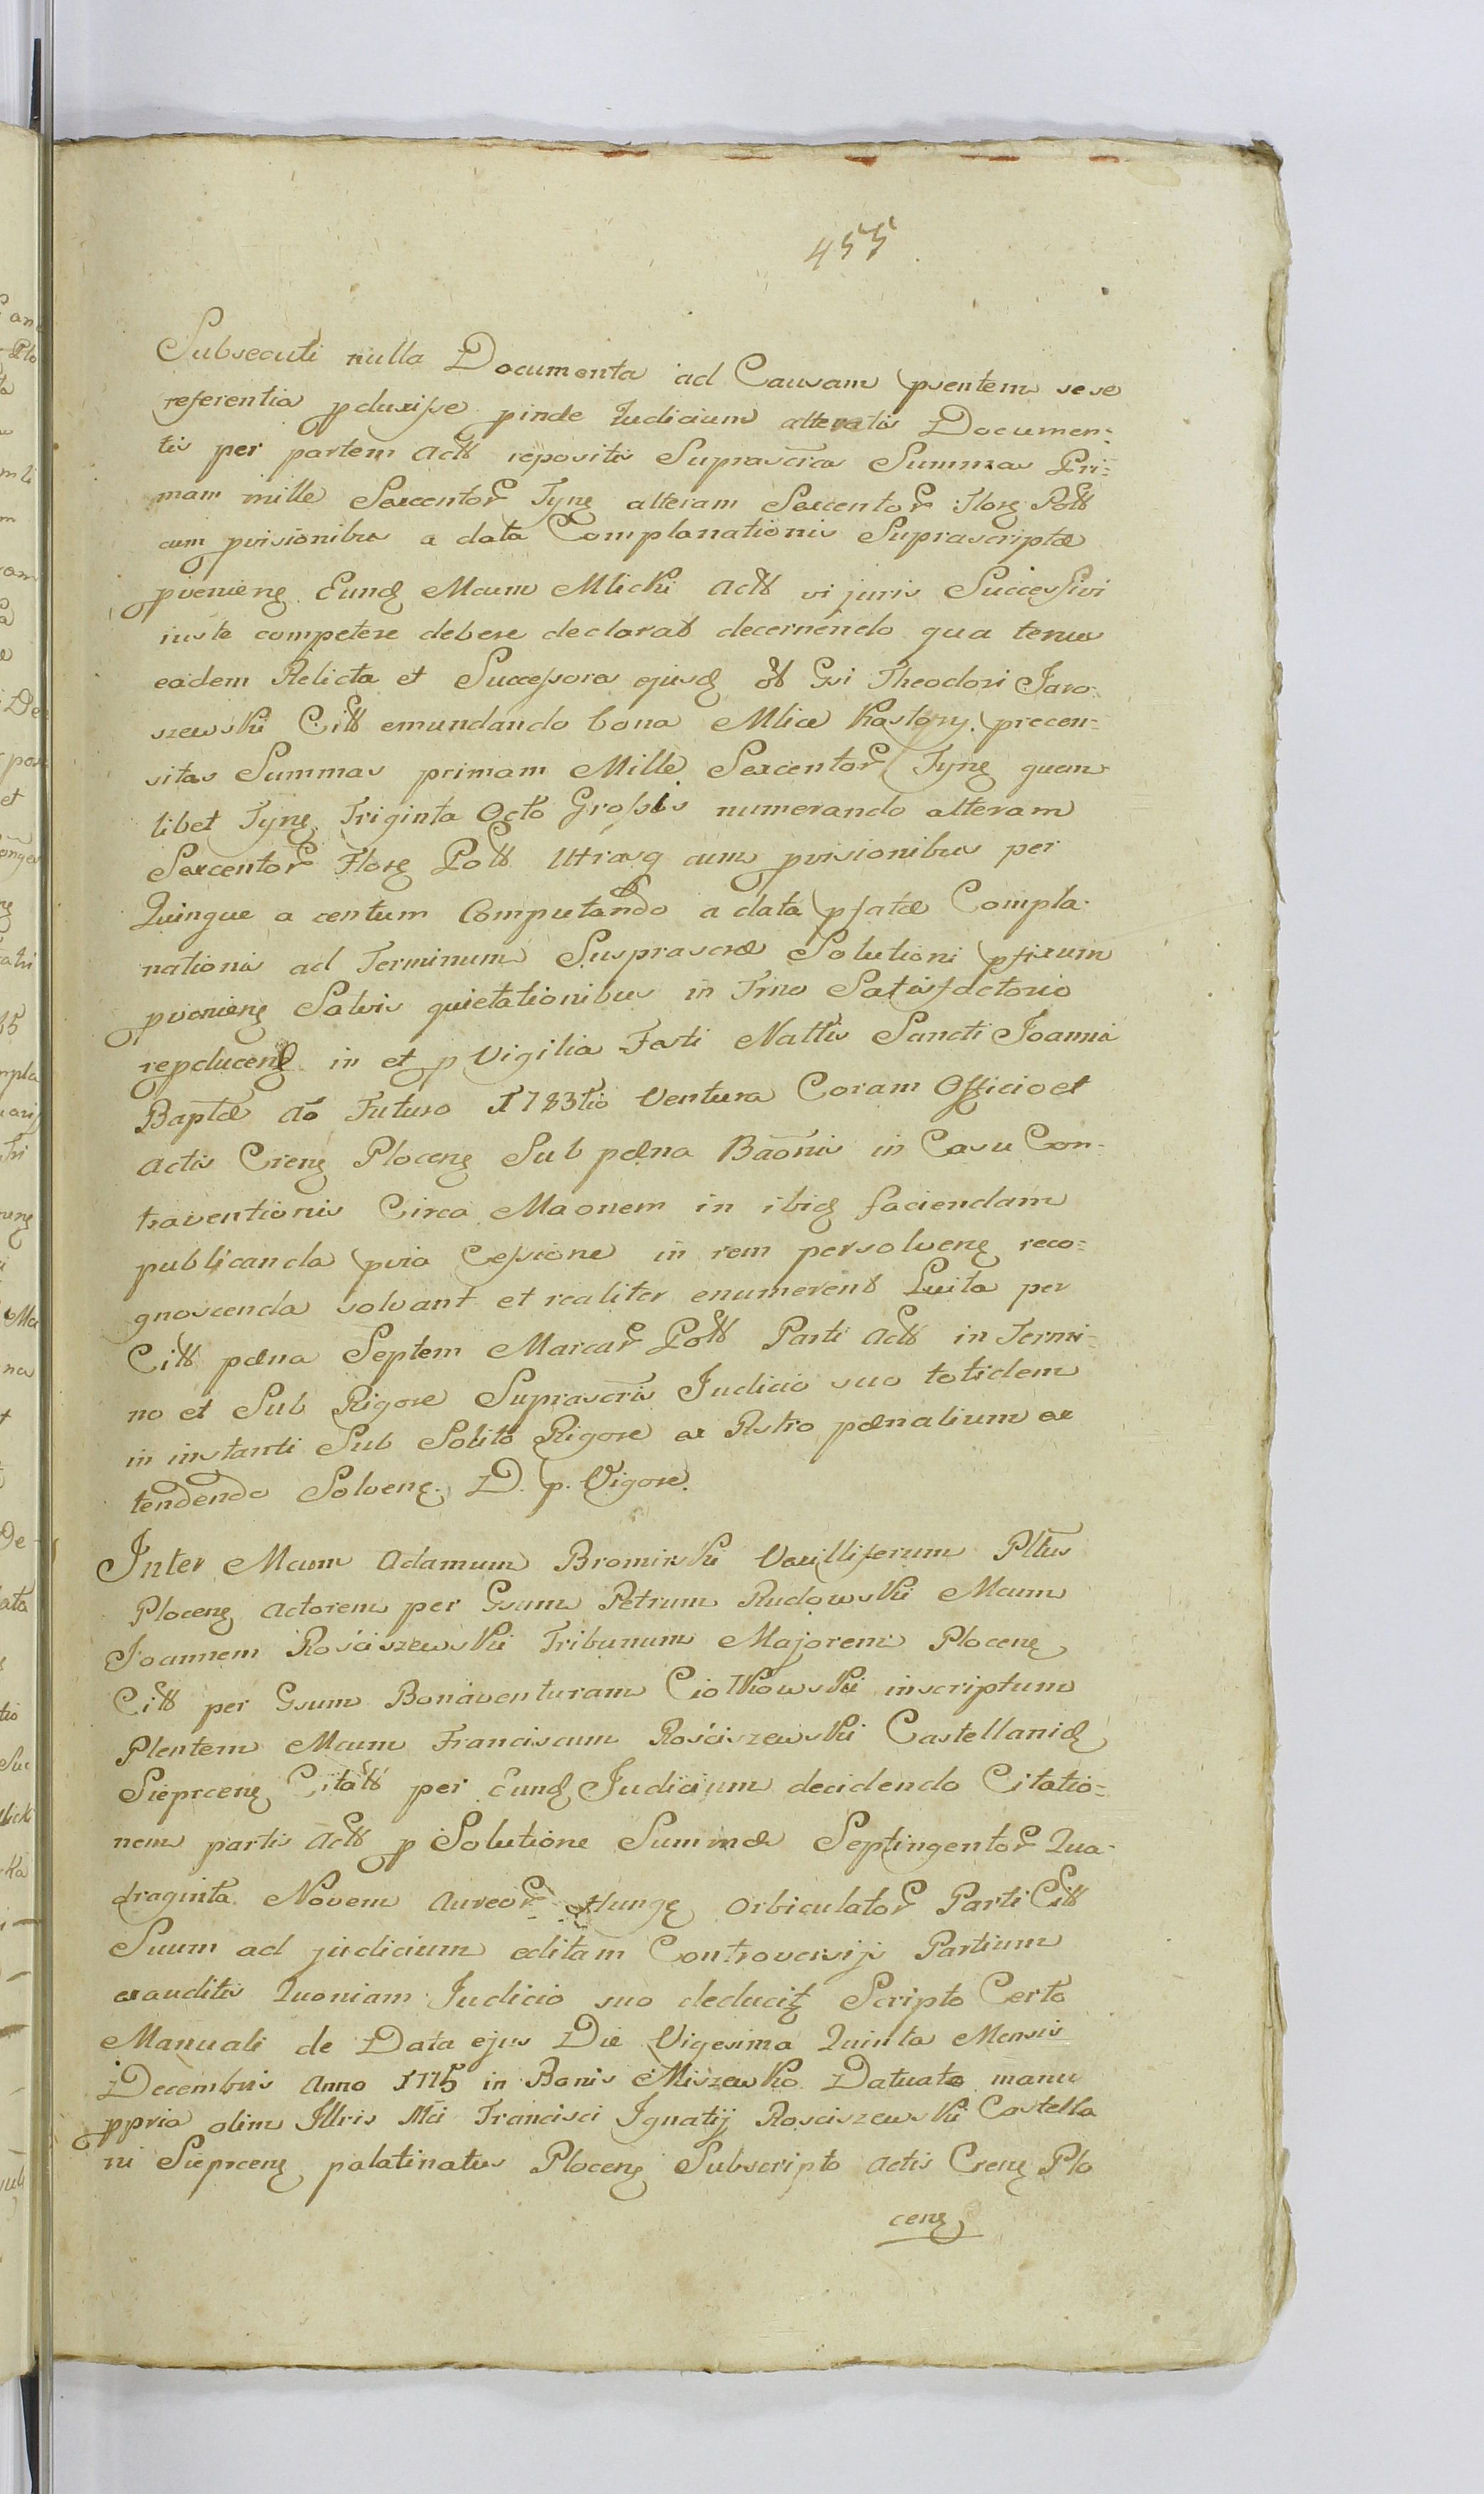 455
Subsecuti nulla Documenta ad Causam pͻsentem sese
referentia pduxisse pinde Judicium alteratis Documen:
tis per partem Actt repositis Suprascr̃ta Summas Pri=
mam mille Sexcentor Tynf alteram Sexcentor Flor Poll
cum pvisionibus a data Complanationis Suprascriptæ
pvenienꝫ Eund Mcum Mlicki Actt vi juris Successivi
iuste competere debere declarat decernendo qua tenus
eadem Relicta et Successores ejusd olt Gsi Theodori Jaro:
szewski Citt emundando bona Mlice Kostery precen=
sitas Summas primam Mille Sexcentor Tynf quem
libet Tynf Triginta Octo Grossis numerando alteram
Sexcentor Flor Poll Utrasq cum pvisionibus per
Quinque a centum Computando a data pfatæ Compla-
nationis ad Terminum Suprascræ Solutioni pfixum
pvenienꝫ Salvis quietationibus in Trno Satisfactorio
repducend in et p Vigilia Festi Nattis Sancti Joannis
Baptæ Ao Futuro 1783tio Ventura Coram Officio et
Actis Crenꝫ Plocenꝫ Sub pæna Baõnis in Casu Con-
traventionis Circa Maonem in ibid faciendam
publicanda pvia Cessione in rem persolvenꝫ reco=
gnoscenda solvant et realiter enumerent Luita per
Citt pæna Septem Marcar Poll Parti Actt in Termi=
no et Sub Rigore Suprascr̃is Judicio suo totidem
in instanti Sub Solito Rigore ex Rstro pænalium ex
tendendo Solvenꝫ. D. p. Vigore.
Inter Mcum Adamum Brominski Vexilliferum Pltus
Plocenꝫ Actorem per Gsum Petrum Rudowski Mcum
Joannem Rościszewski Tribunum Majorem Plocenꝫ
Citt per Gsum Bonaventuram Ciołkowski inscriptum
Plentem Mcum Franciscum Rościszewski Castellanid
Sieprcenꝫ Citatt per Eund Judicium decidendo Citatio=
nem partis Actt p Solutione Summæ Septingentor Qua-
draginta Novem Aureor Hungꝫ orbiculator Parti Citt
Suum ad judicium editam Controversijs Partium
exauditis Quoniam Judicio suo deducitꝫ Scripto Certo
Manuali de Data ejus Die Vigesima Quinta Mensis
Decembris Anno 1775 in Bonis Miszewko Datuato manu
ppria olim Illris Mci Francisci Ignatij Rosciszewski Castella
ni Sieprcenꝫ palatinatus Plocenꝫ Subscripto Actis Crenꝫ Plo
cenꝫ